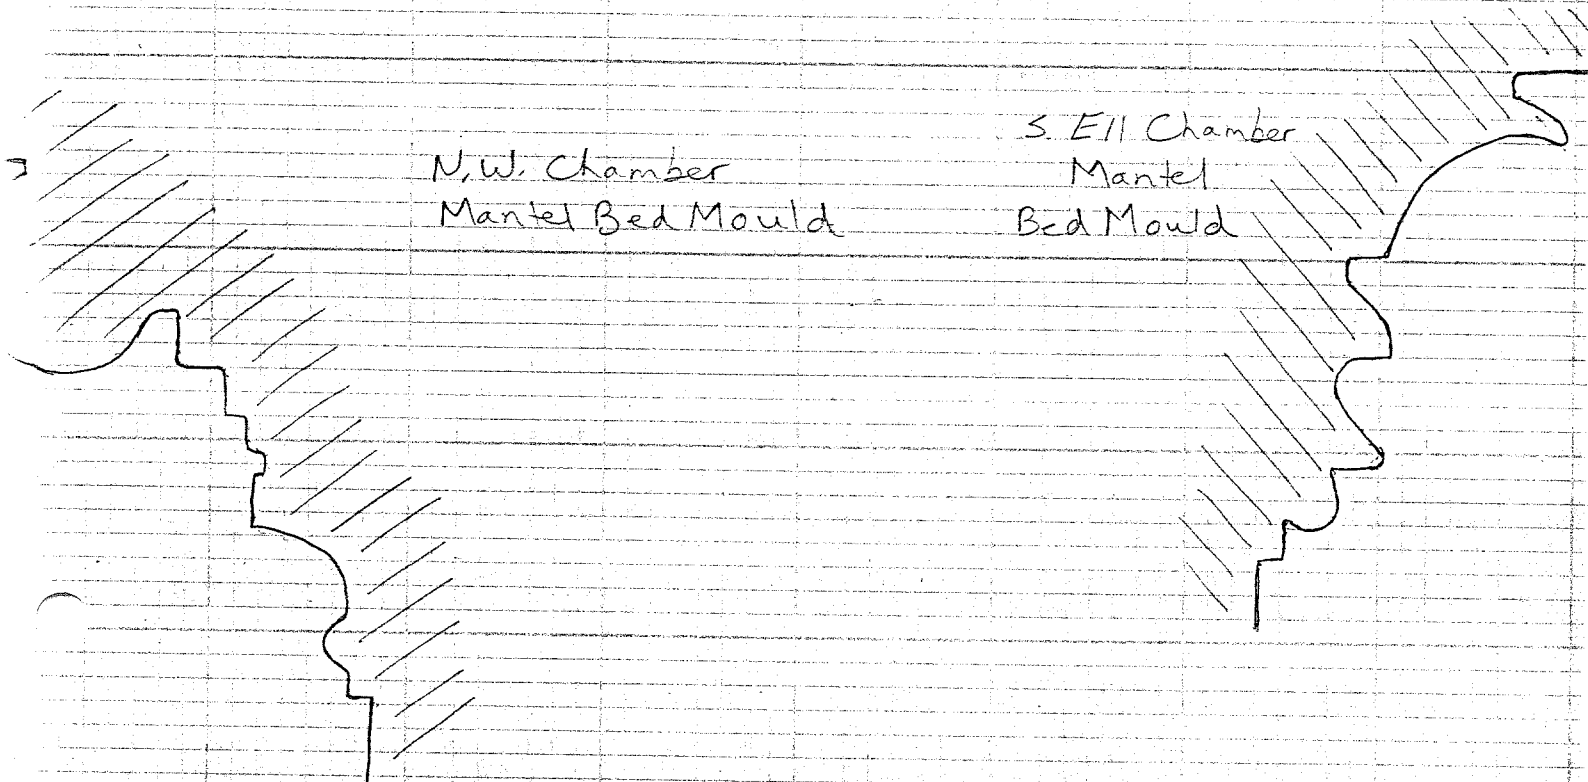 N.W. Chamber
Mantel Bed Mould
S. Ell Chamber
Mantel
Bed Mould